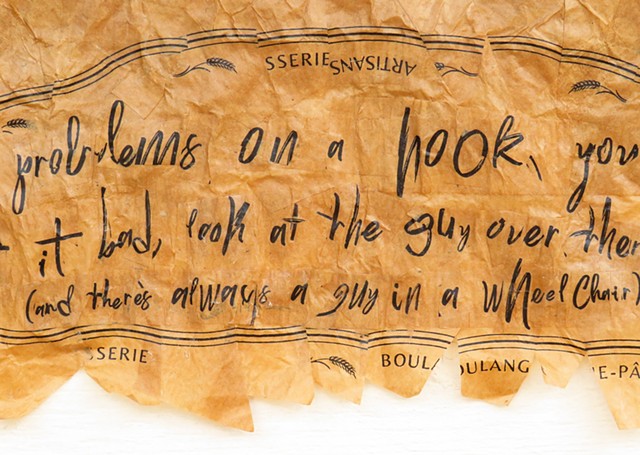 SSERIE ARTISANS
problems on a hook, you
it bad, look at the guy over ther
(and there's always a guy in a wheel Chair)
SSERIE BOULA OULANG IE-PÂ